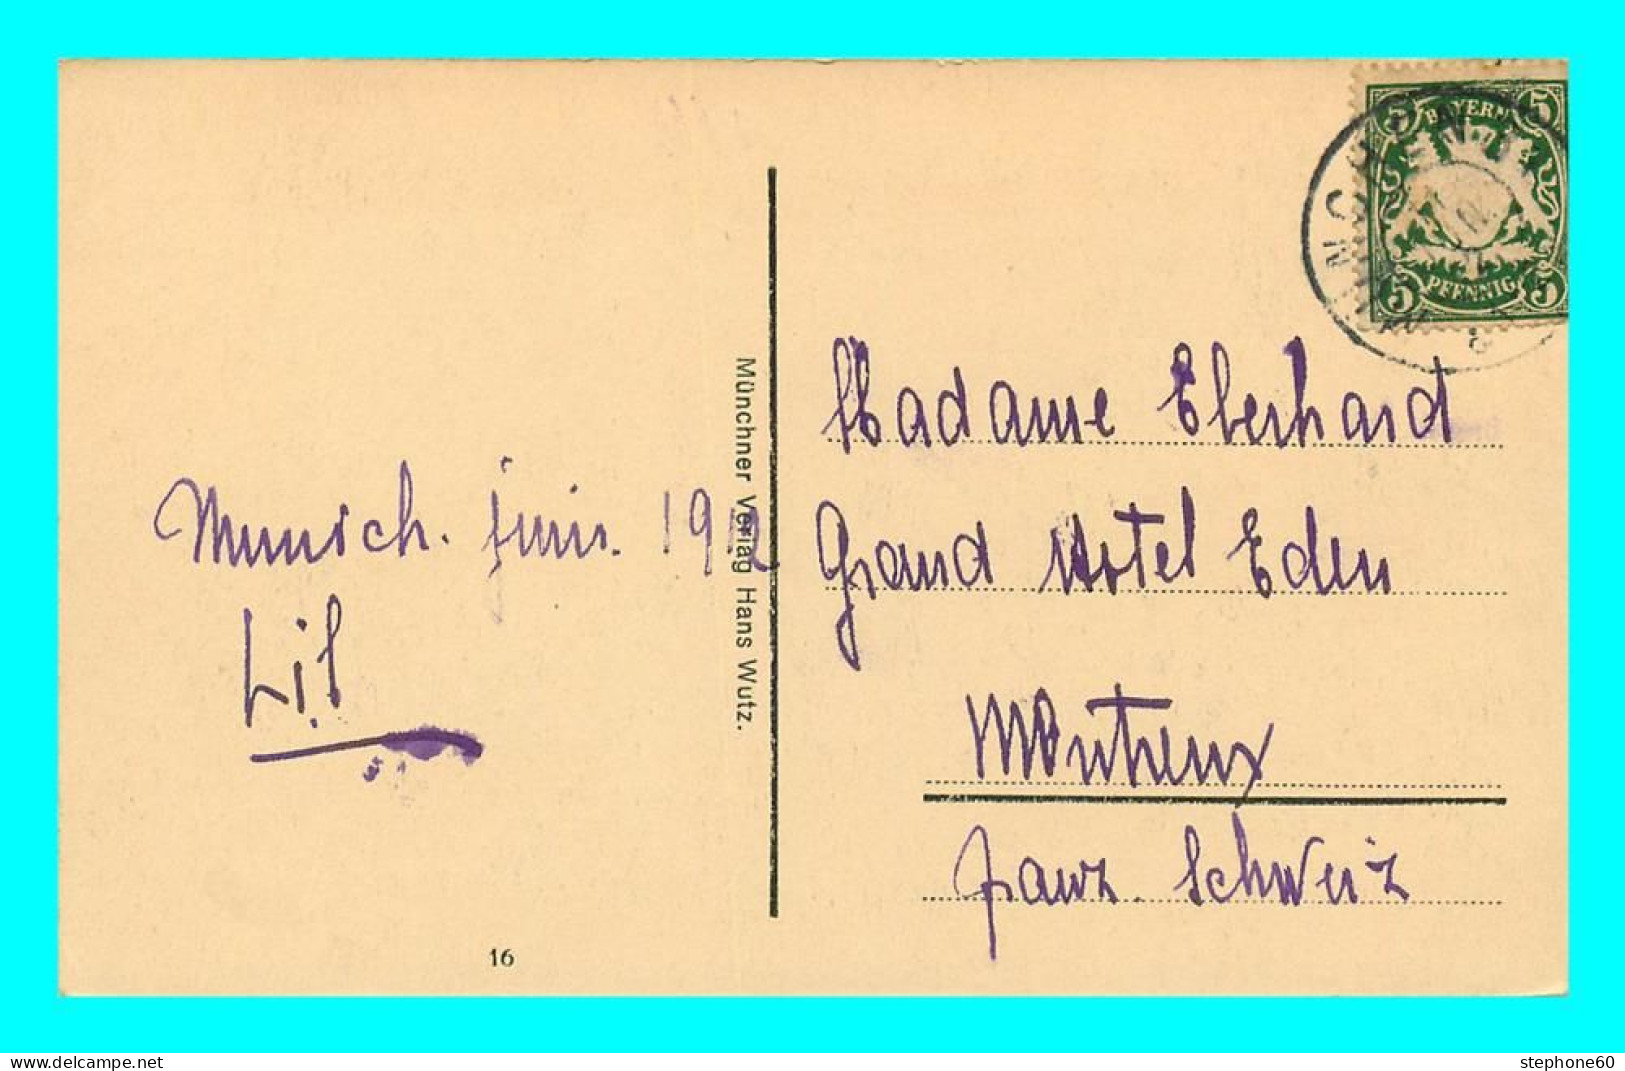 5 BAYERN 5
5 PFENNIG 5
Munich. juin. 191
Lil
16
Münchner Verlag Hans Wutz.
Madame Eberhard
Grand Hotel Eden
Montreux
franz. Schweiz
www.delcampe.net
stephone60